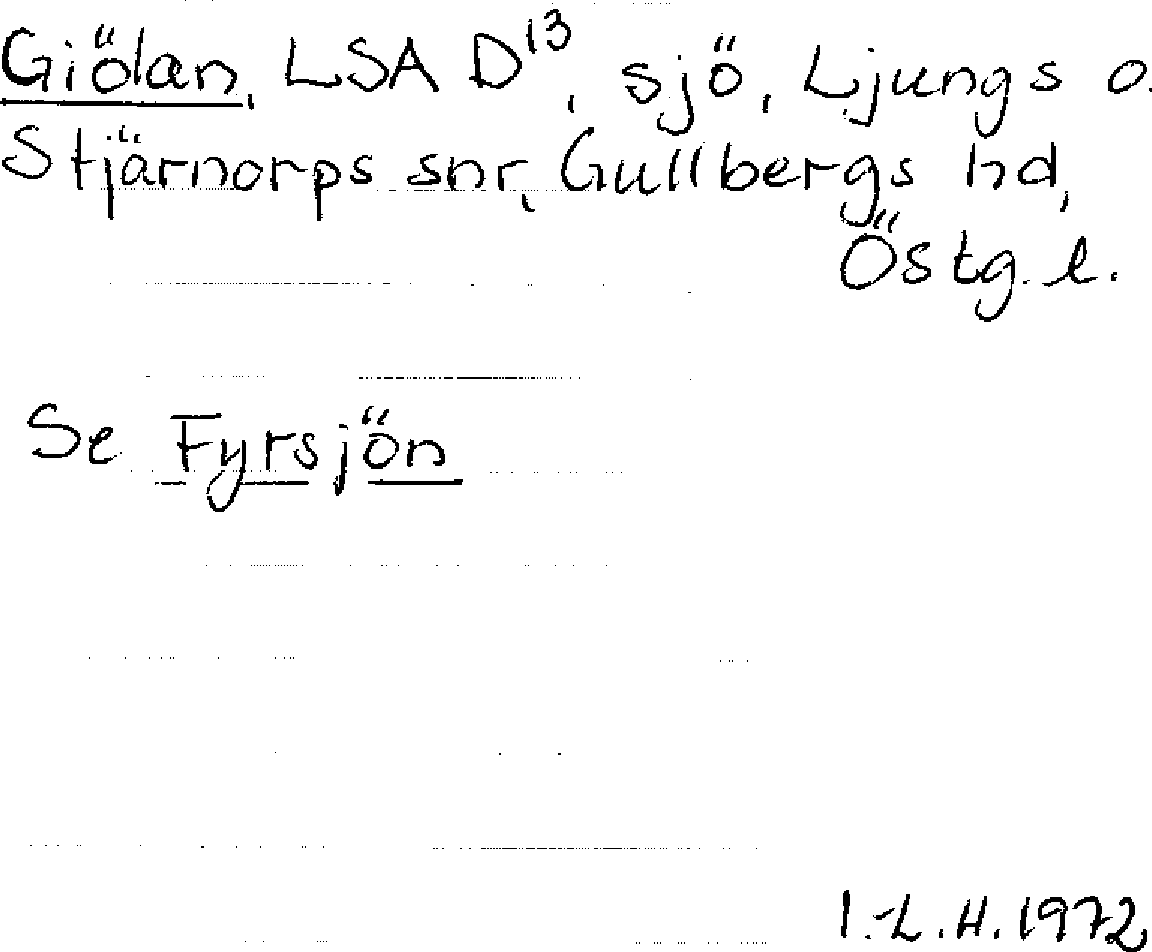 Giölan, LSA D¹³, sjö, Ljungs o.
Stjärnorps snr, Gullbergs hd,
Östg. l.
Se Fyrsjön
I.-L.H. 1972